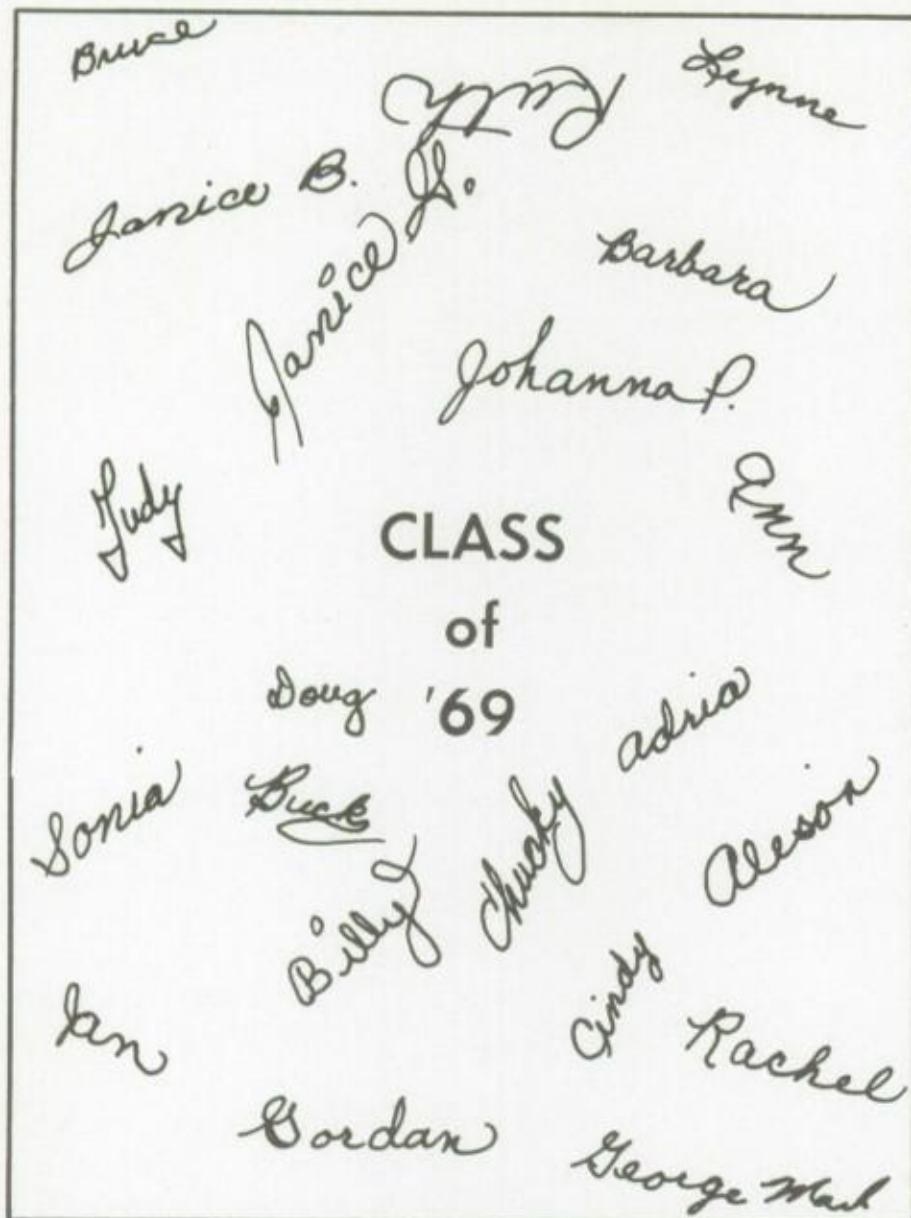 Bruce
Ruth
Lynne
Janice B.
Janice G.
Barbara
Johanna P.
Judy
Ann
CLASS
of
'69
Doug
adria
Sonia
Buck
Chucky
Alison
Billy
Cindy
Ian
Rachel
Gordan
George Mark